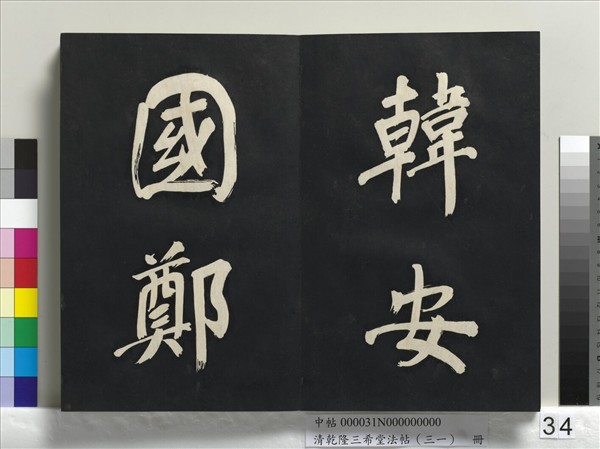 韓安
國鄭
中帖 000031N000000000
清乾隆三希堂法帖（三一） 冊
34